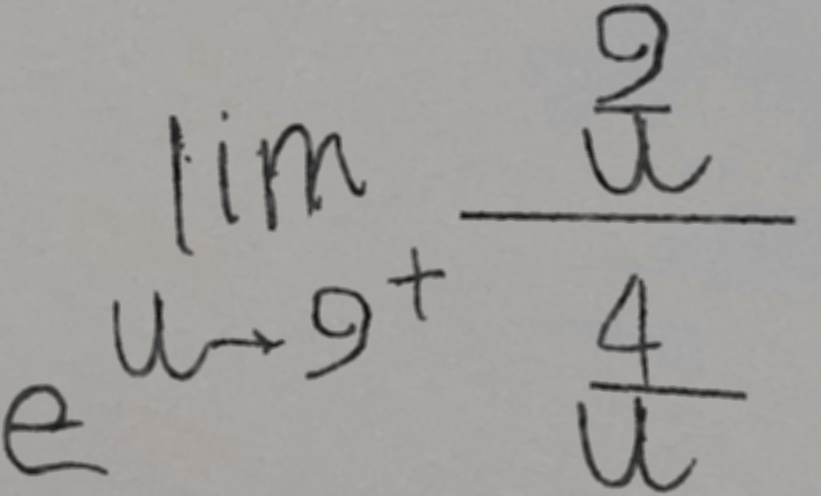 e^{\lim_{u \to 9^+} \frac{\frac{9}{u}}{\frac{4}{u}}}